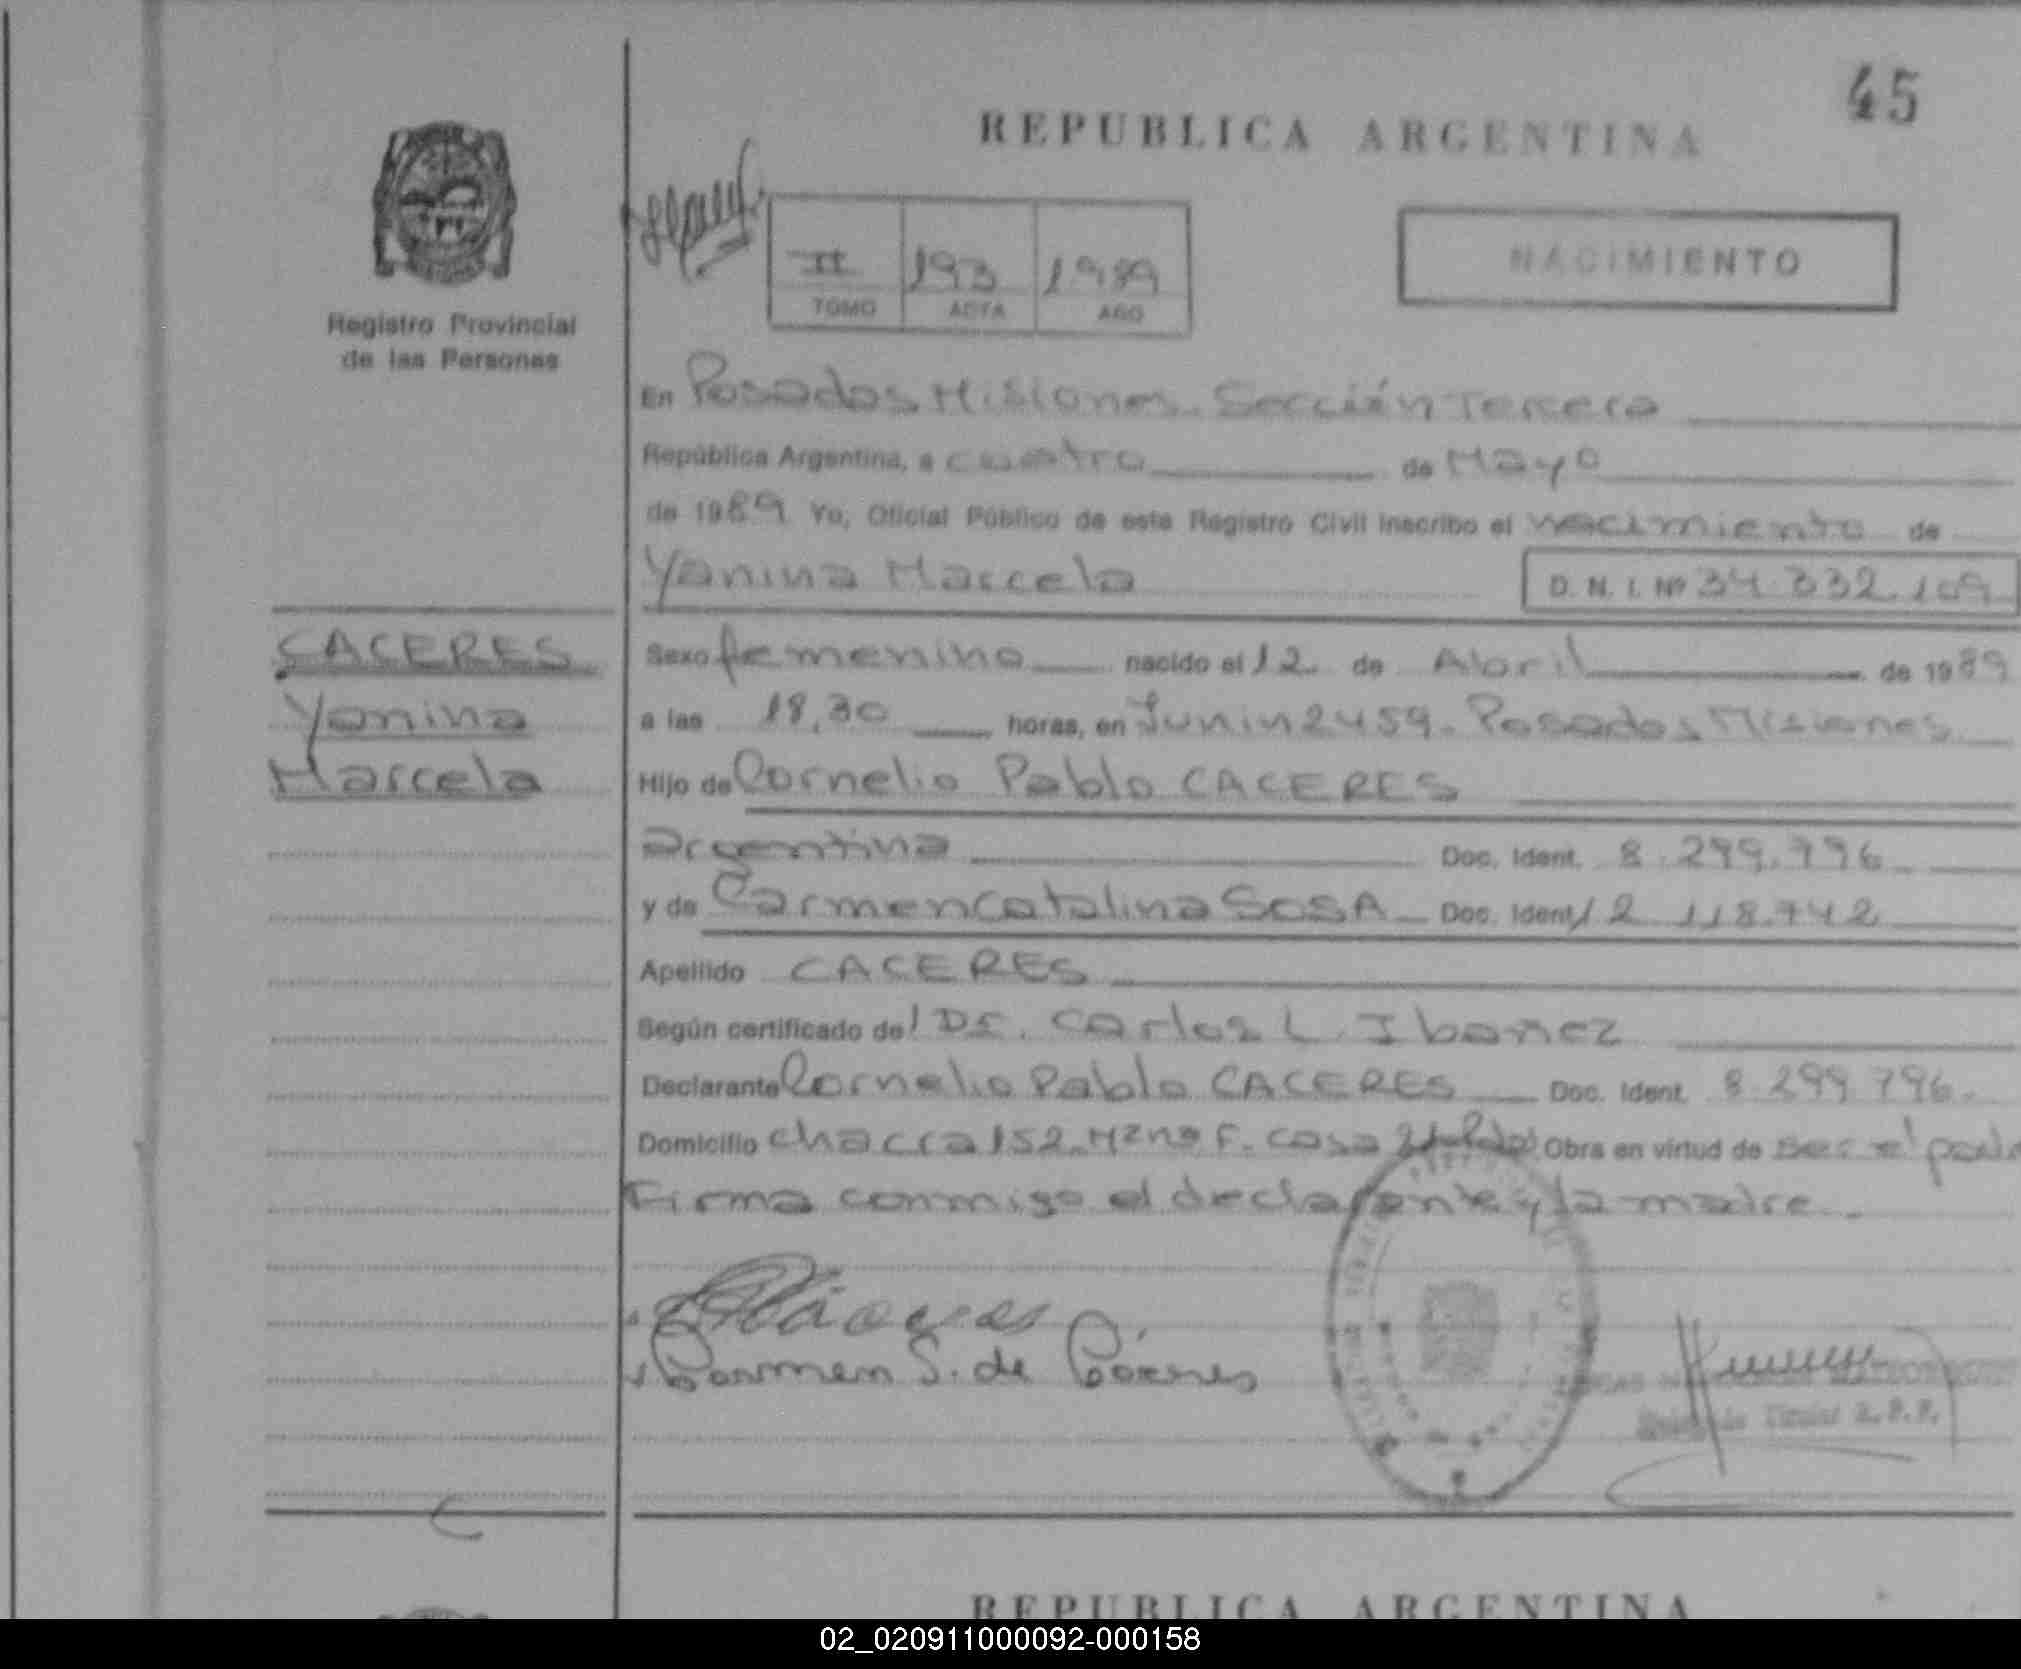 45
REPUBLICA ARGENTINA
II 193 1989
TOMO ACTA AÑO
NACIMIENTO
Registro Provincial
de las Personas
En Posadas Misiones. Sección Tercera
República Argentina, a cuatro de Mayo
de 1989 Yo, Oficial Público de este Registro Civil inscribo el nacimiento de
Yanina Marcela D. N. I. Nº 34.332.109
CACERES
Yanina
Marcela
Sexo femenino nacido el 12 de Abril de 1989
a las 18,30 horas, en Junin 2459. Posadas Misiones
Hijo de Cornelio Pablo CACERES
argentina Doc. Ident. 8.299.796
y de Carmen Catalina SOSA Doc. Ident. 12 118.742
Apellido CACERES
Según certificado del Dr. Carlos L. Ibanez
Declarante Cornelio Pablo CACERES Doc. Ident. 8.299.796.
Domicilio Chacra 152. Mzna F. Casa Obra en virtud de ser el padre
Firma conmigo el declarante y la madre.
Carmen S. de Cáceres
Titular
REPUBLICA ARGENTINA
02_020911000092-000158